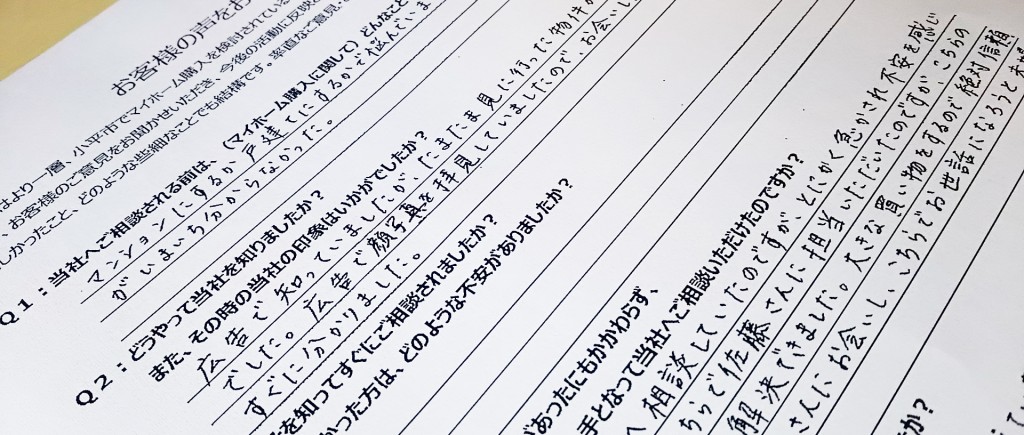 お客様の声をお
はより一層、小平市でマイホーム購入を検討されている
お聞かせいただき、今後の活動に反映
、お客様のご意見をお聞かせください。率直なご意見
しかったこと、どのような些細なことでも結構です。
Q1：当社へご相談される前は、（マイホーム購入に関して）どんなこと
で悩んでいま
マンションにするか戸建てにするか
がいまいち分からなかった。
Q2：どうやって当社を知りましたか？
また、その時の当社の印象はいかがでしたか？
広告で知っていましたが、たまたま見に行った物件が
でした。広告で顔写真を拝見していましたので、お会いし
すぐに分かりました。
を知ってすぐにご相談されましたか？
かった方は、どのような不安がありましたか？
があったにもかかわらず、
手となって当社へご相談いただけたのですか？
へ相談していたのですが、とにかく急かされ不安を感じ
ちらで佐藤さんに担当いただいたのですがこちらの
解決できました。大きな買い物をするので絶対信頼
さんにお会いし、こちらでお世話になろうと
か？